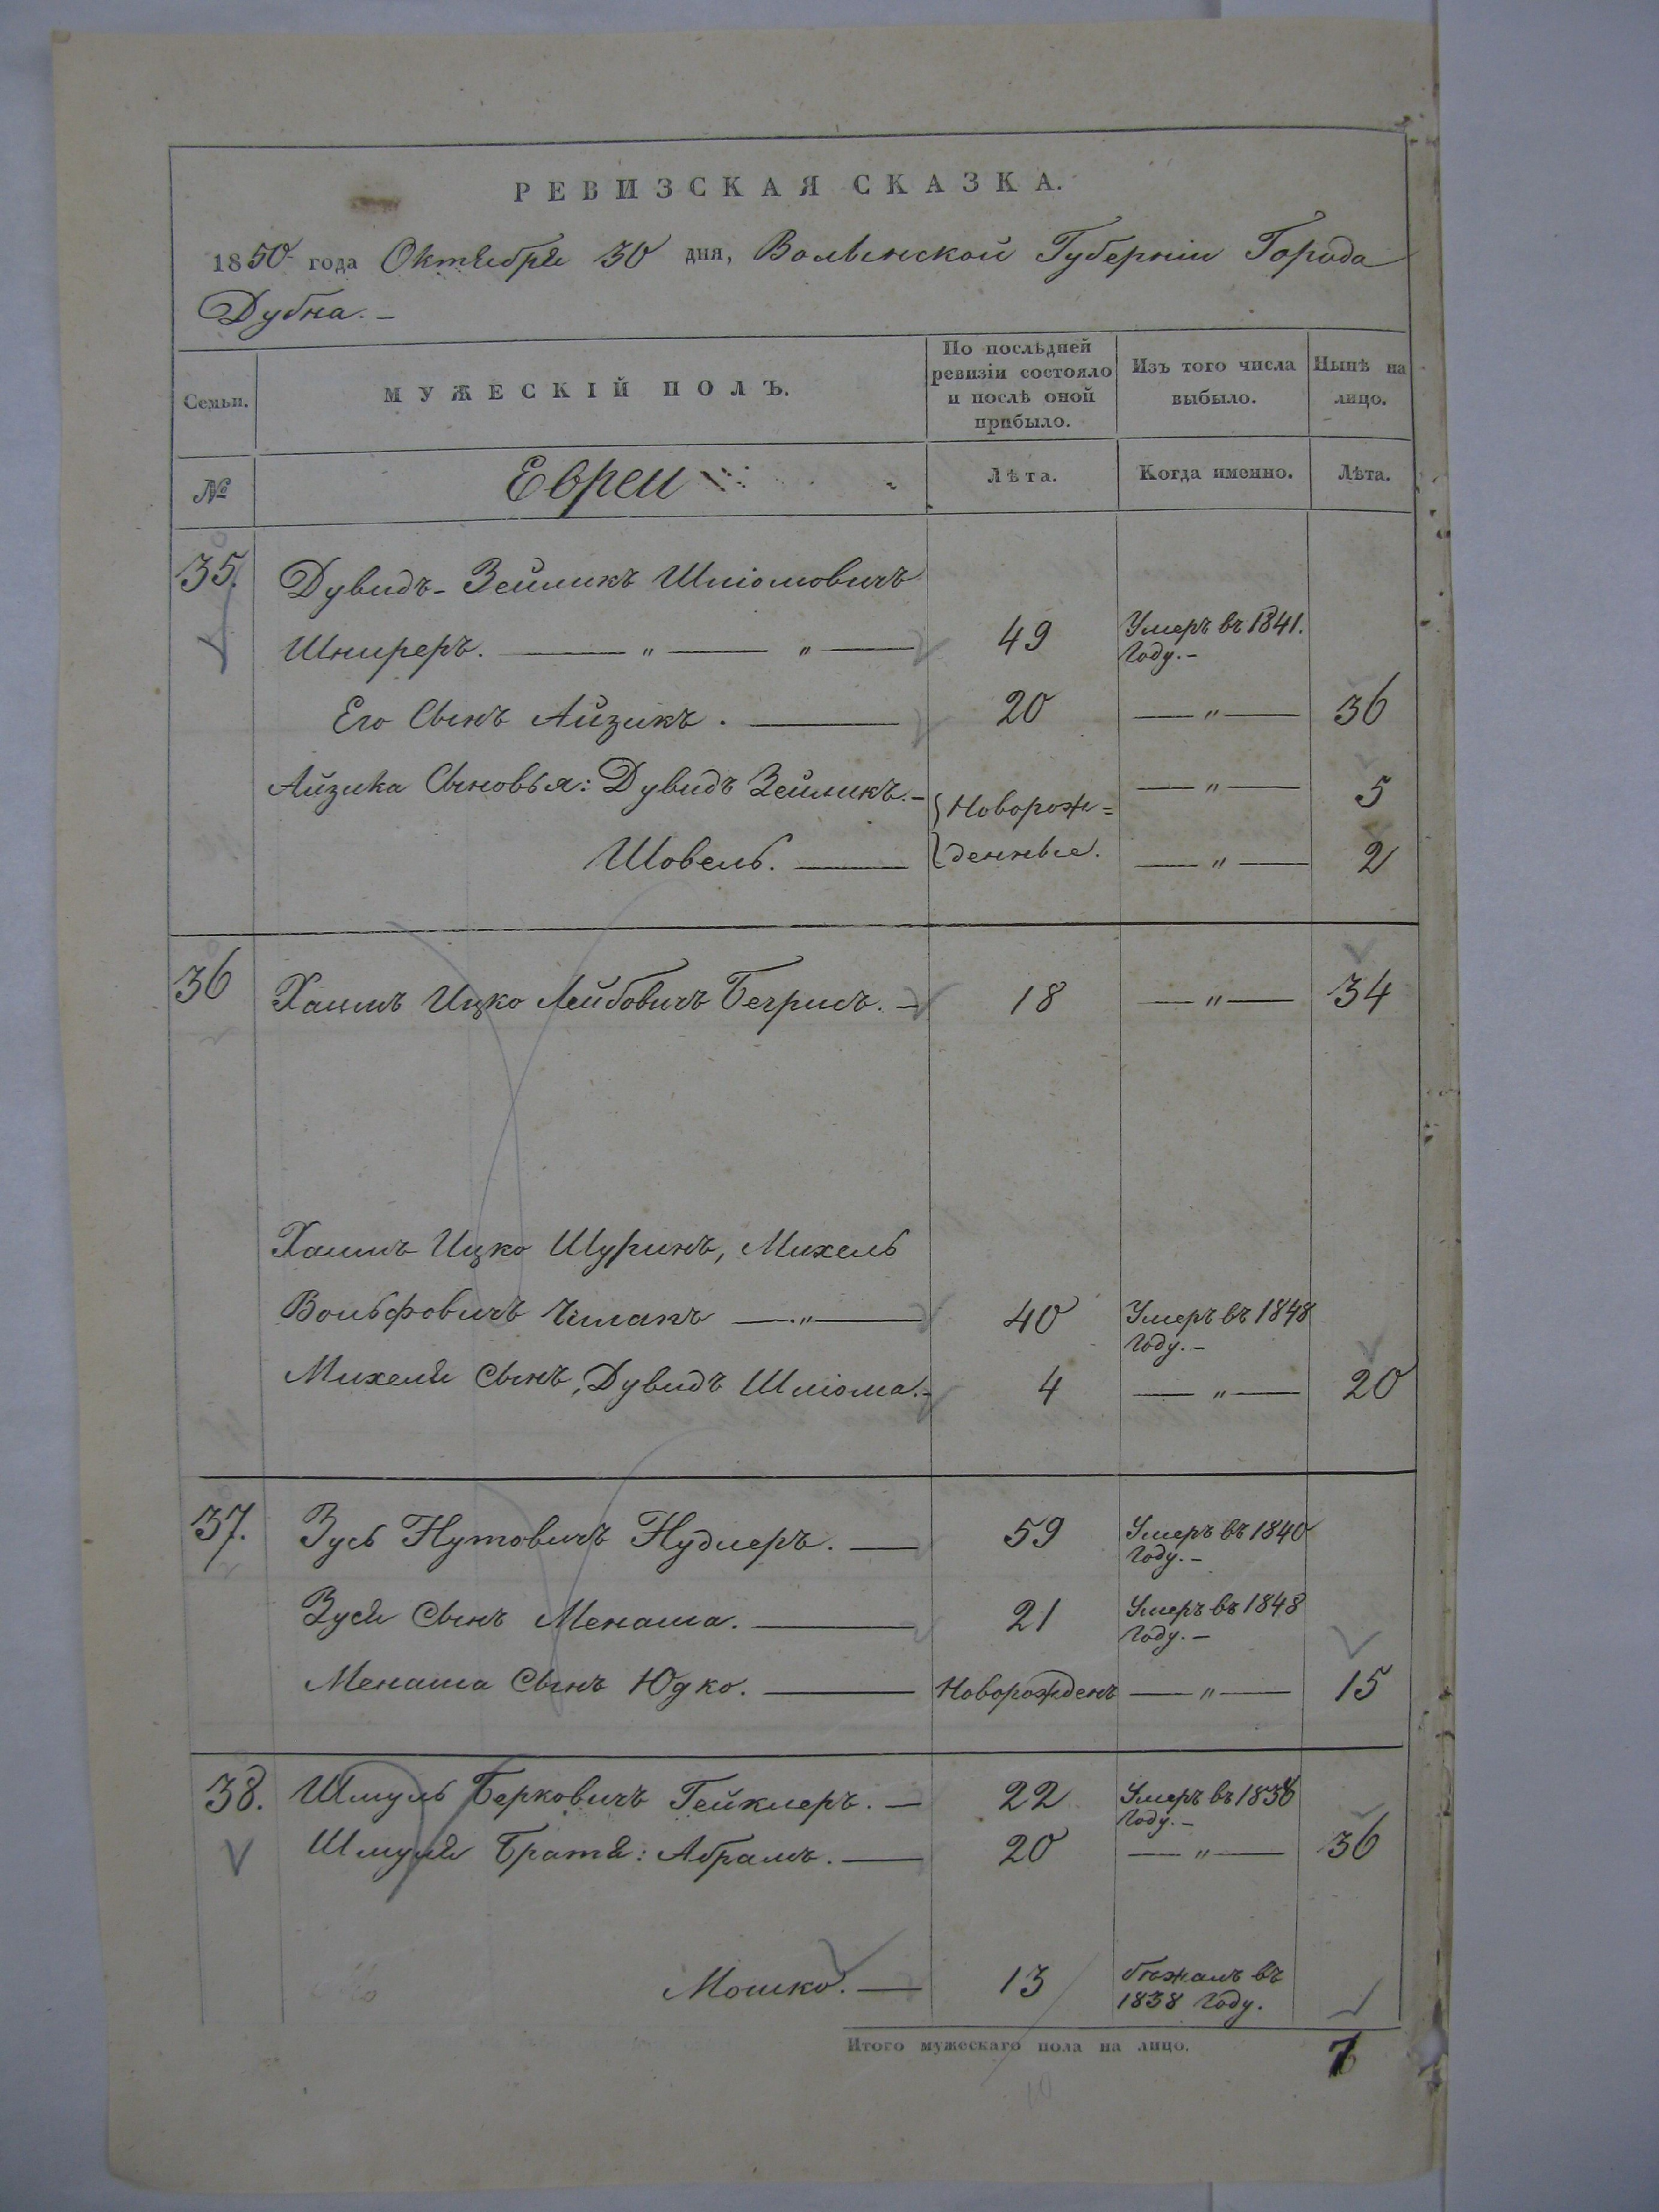 РЕВИЗСКАЯ СКАЗКА.
1850 года Октября 30 дня, Волынской Губерніи Города
Дубна. –
Семьи.
МУЖЕСКІЙ ПОЛЪ.
По послѣдней
ревизіи состояло
и послѣ оной
прибыло.
Изъ того числа
выбыло.
Нынѣ на
лицо.
№
Евреи
Лѣта.
Когда именно.
Лѣта.
35.
Дувидъ-Зейликъ Шліомовичъ
Шниреръ. — " — " — 49 Умеръ въ 1841.
Году. –
Его Сынъ Айзикъ. — 20 — " — 36
Айзика Сыновья: Дувидъ Зейликъ. – Новорож= — " — 5
Шовель. — денные. — " — 2
36 Хаимъ Ицко Лейбовичъ Бегрисъ. – 18 — " — 34
Хаимъ Ицко Шуринъ, Михель
Вольфовичъ — " — 40 Умеръ въ 1848
Году. –
Михеля Сынъ, Дувидъ Шліома. – 4 — " — 20
37. Зусь Нутовичъ Нудлеръ. — 59 Умеръ въ 1840
Году. –
Зуся Сынъ Менаша. — 21 Умеръ въ 1848
Году. –
Менаша Сынъ Юдко. — Новорожденъ — " — 15
38. Шмуль Берковичъ Гейклеръ. — 22 Умеръ въ 1838
Году. –
Шмуля Братя: Абрамъ. — 20 — " — 36
Мошко. — 13 бѣжалъ въ
1838 Году.
Итого мужескаго пола на лицо. 7